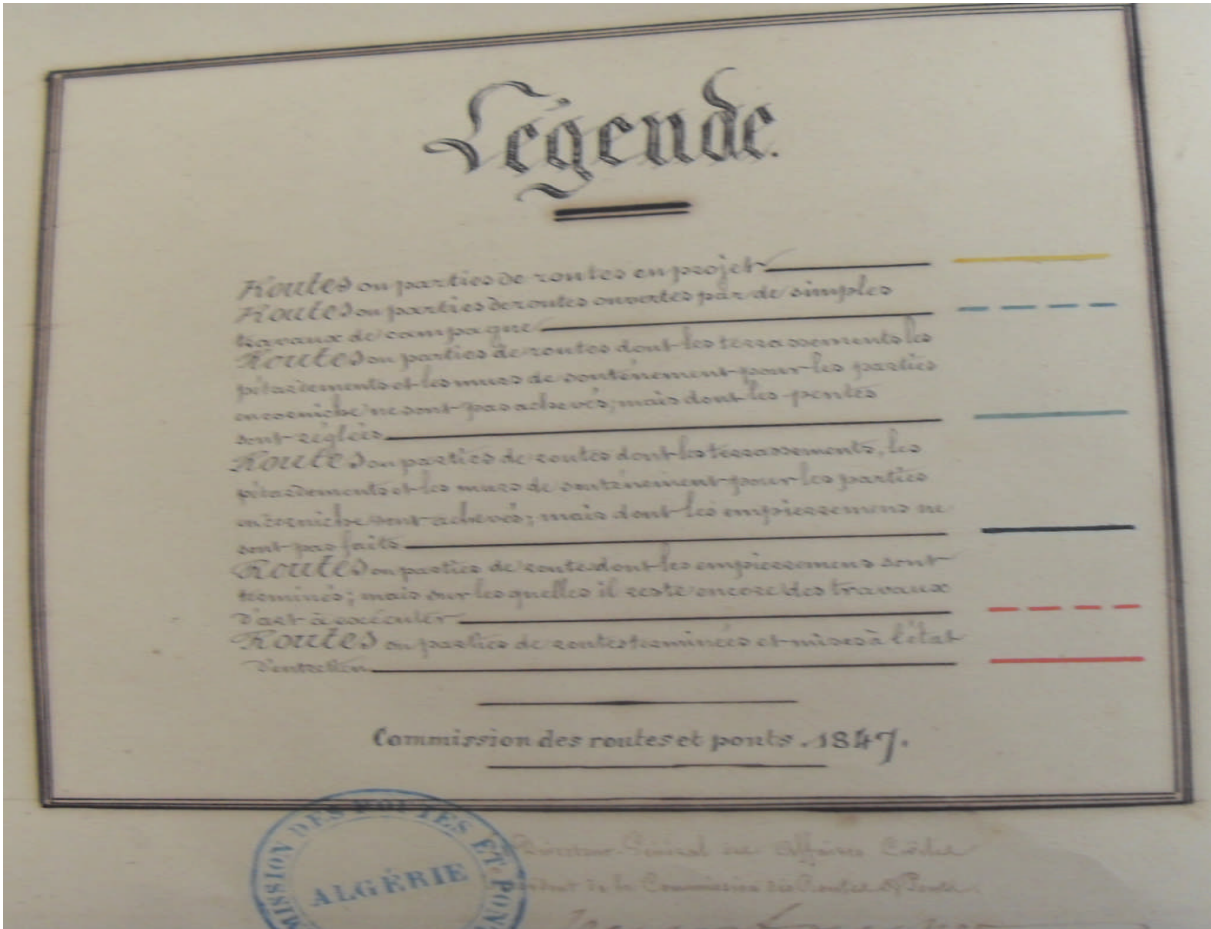 Légende.
Routes ou parties de routes en projet
Routes ou parties de routes ouvertes par de simples
travaux de campagne
Routes ou parties de routes dont les terrassements les
pétardements et les murs de soutènement pour les parties
en corniche ne sont pas achevés; mais dont les pentes
sont réglées
Routes ou parties de routes dont les terrassements, les
pétardements et les murs de soutènement pour les parties
en corniche sont achevés; mais dont les empierremens ne
sont pas faits
Routes ou parties de route dont les empierremens sont
terminés; mais sur lesquelles il reste encore des travaux
d'art à exécuter
Routes ou parties de routes terminées et mises à l'état
d'entretien
Commission des routes et ponts. 1847.
MISSION DES ROUTES ET PON
ALGÉRIE
Directeur Général des Affaires Civiles
de la Commission des Routes & Ponts